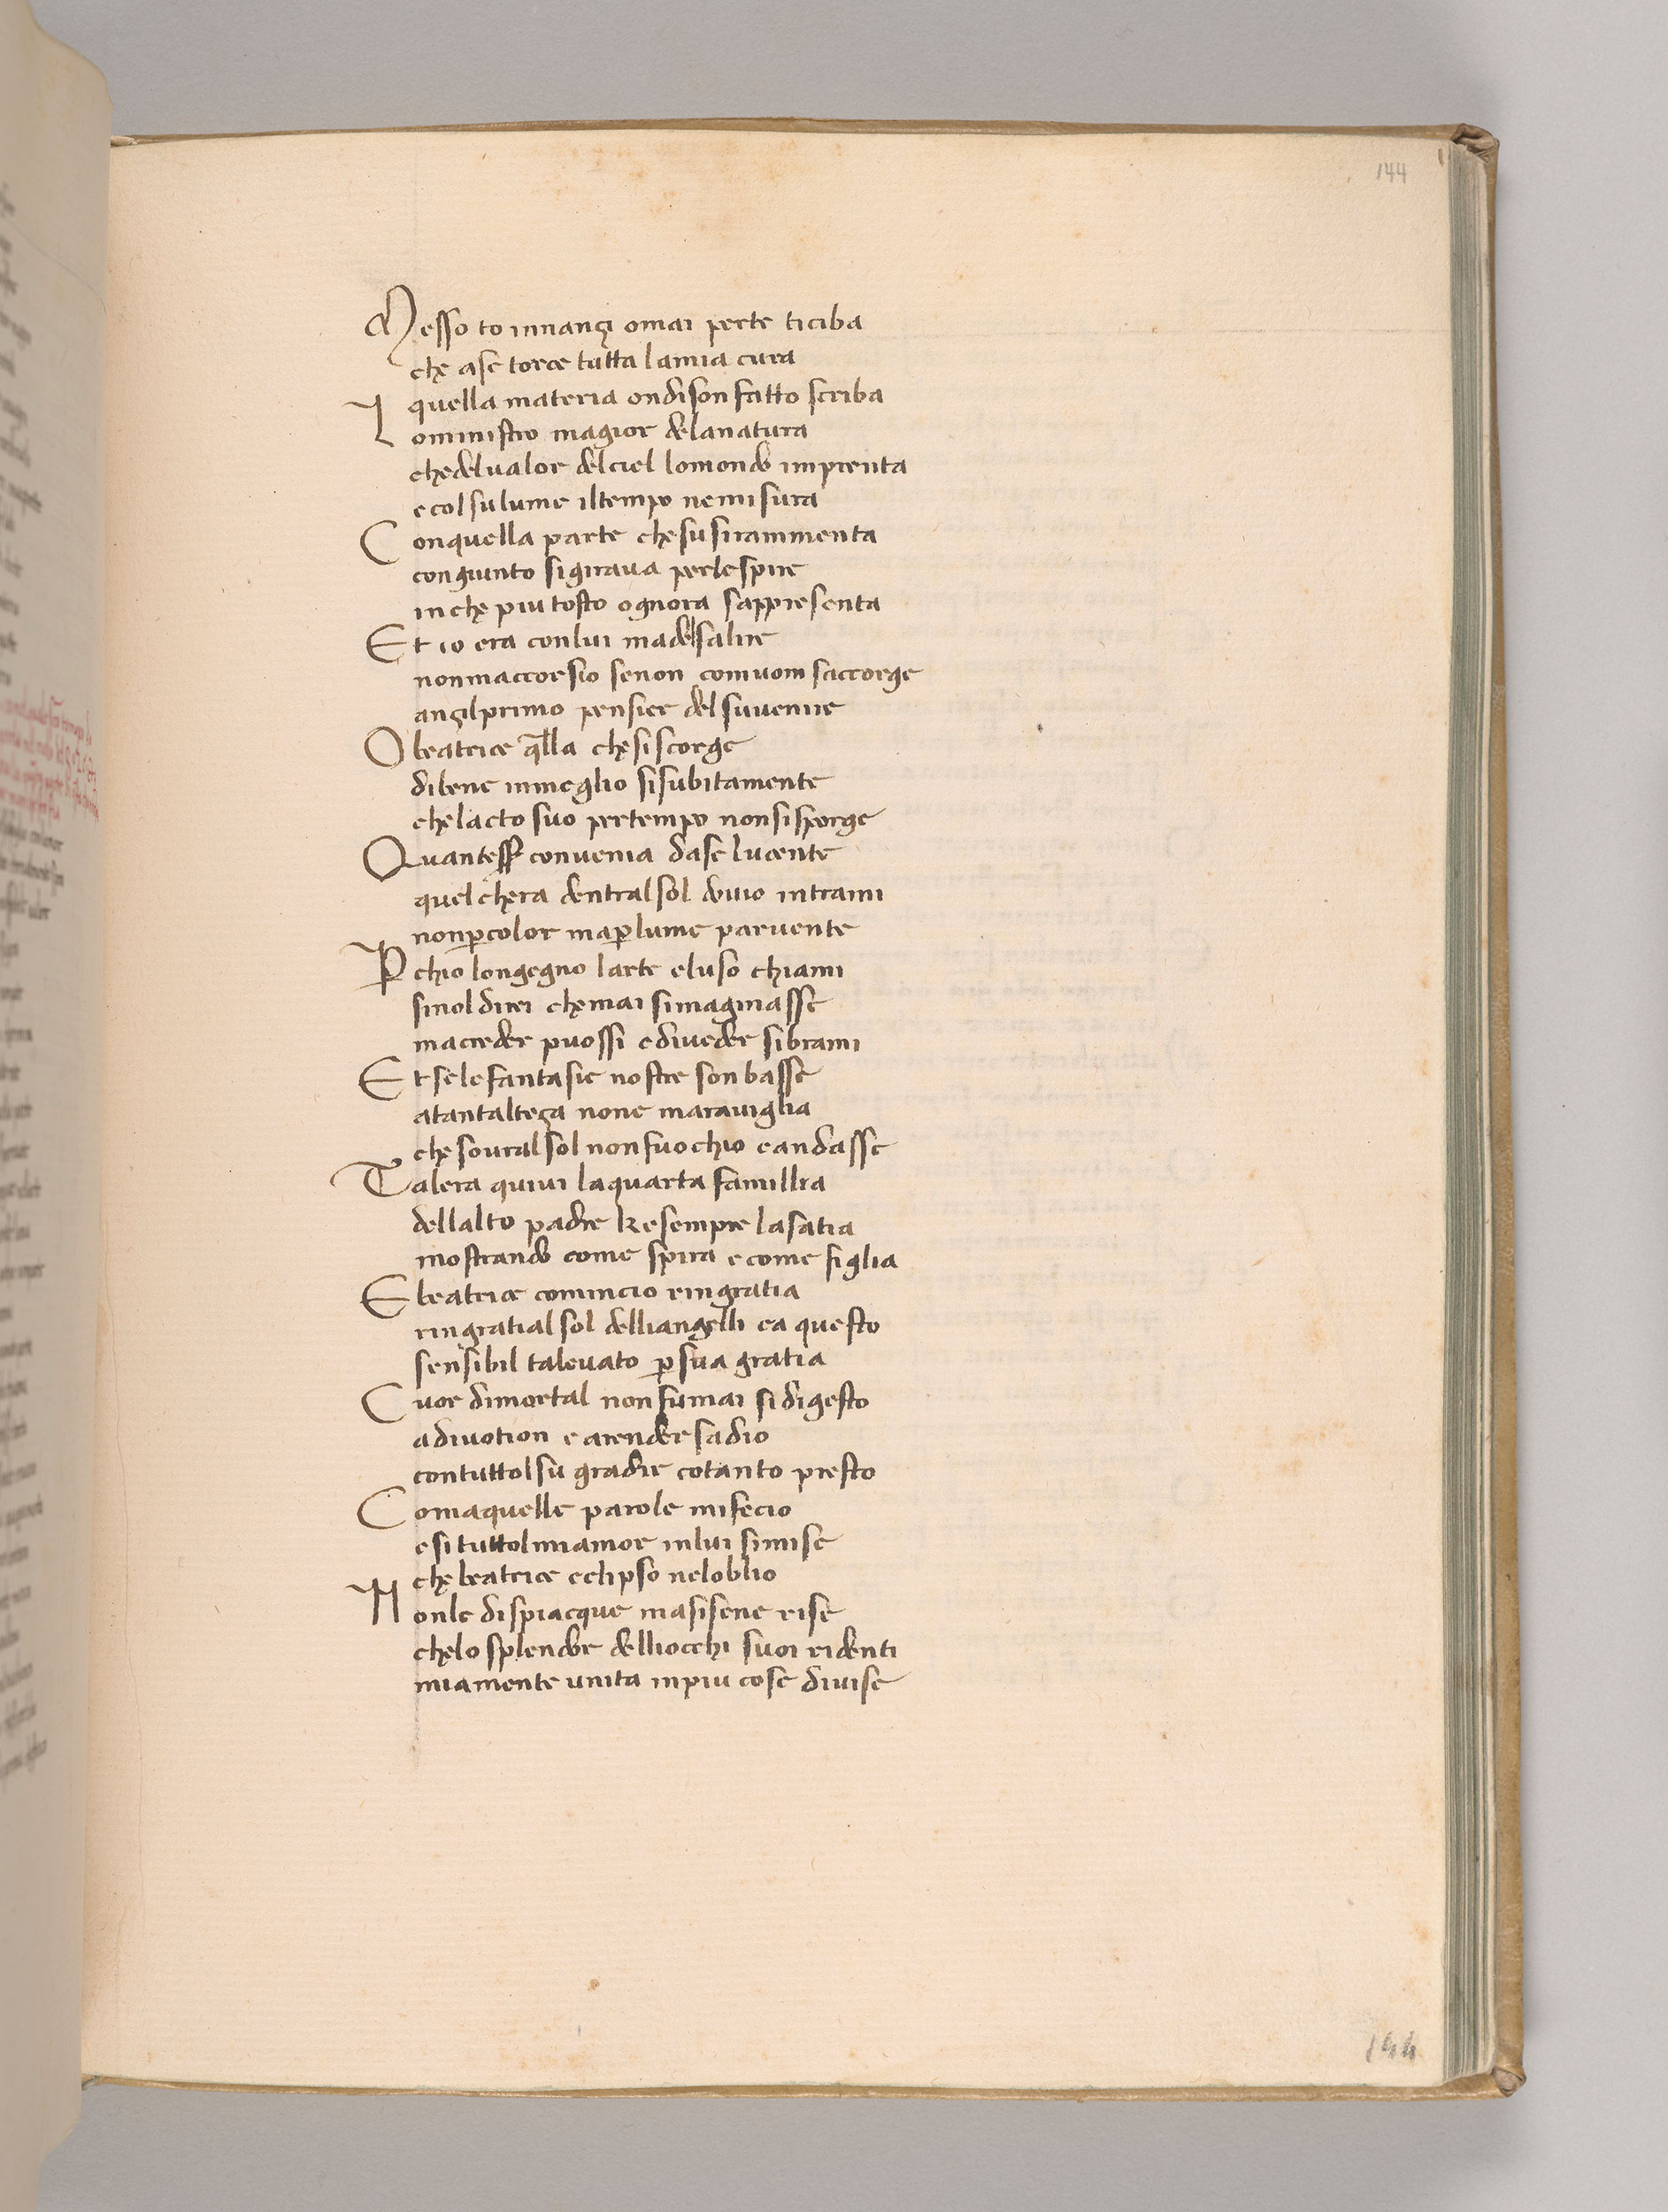 144
Messo to innançi omai perte ticiba
che ase torce tutta lamia cura
quella materia ondison fatto scriba
Lo ministro magior delanatura
chedelualor delciel lomondo imprenta
ecol sulume iltempo nemisura
Conquella parte chesusirammenta
congiunto sigiraua perlespire
inche piu tosto ognora sappresenta
Et io era conlui madelsalire
nonmaccorsio senon comuom saccorge
ançilprimo pensier del suuenire
Obeatrice qlla chesiscorge
dibene inmeglio sisubitamente
chelacto suo pertempo nonsisporge
Quantesser conuenia dase lucente
quelchera dentralsol douio intrami
nonpcolor maplume paruente
Pchio longegno larte eluso chiami
sinoldirei chemai simaginasse
macreder puossi ediueder sibrami
Et selefantasie nostre sonbasse
atantalteça none marauiglia
chesouralsol nonfuochio candasse
Talera quiui laquarta famillia
dellalto padre ke sempre lasatia
mostrando come spira ecome figlia
Ebeatrice comincio ringratia
ringratial sol delliangelli ea questo
sensibil taleuato psua gratia
Cuor dimortal nonfumai sidigesto
adiuotion e arendersadio
contuttolsu gradire cotanto presto
Comaquelle parole mifecio
esituttolmiamor inlui simise
che beatrice eclipso neloblio
Nonle dispiacque masisene rise
chelo splendore delliocchi suoi ridenti
miamente unita inpiu cose diuise
144